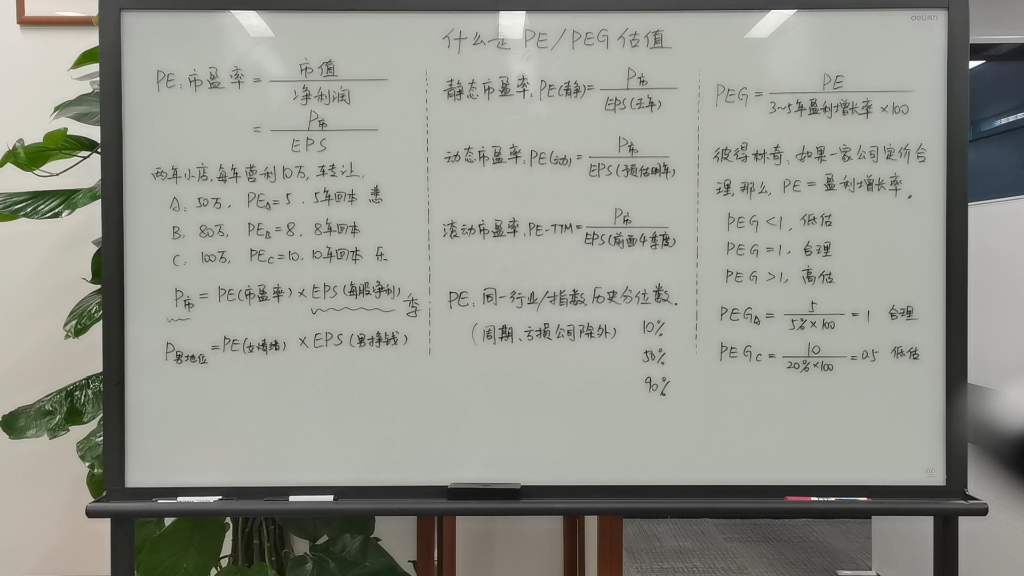 deli
什么是 PE/PEG 估值
PE:市盈率 = 市值
净利润
= P市
EPS
两年小店,每年营利10万,转让,
A: 50万, PEA=5. 5年回本 悲
B: 80万, PEB=8. 8年回本
C: 100万, PEC=10. 10年回本 乐
P市 = PE(市盈率) × EPS(每股净利) 季
P男地位 = PE(女情绪) × EPS(男挣钱)
静态市盈率, PE(静)= P市
EPS(去年)
动态市盈率, PE(动)= P市
EPS(预估明年)
滚动市盈率, PE-TTM= P市
EPS(前面4季度)
PE: 同一行业/指数,历史分位数.
(周期、亏损公司除外) 10%
50%
90%
PEG= PE
3~5年盈利增长率×100
彼得林奇、如果一家公司定价合
理,那么, PE=盈利增长率.
PEG<1, 低估
PEG=1, 合理
PEG>1, 高估
PEGA= 5
5%×100 =1 合理
PEGC= 10
20%×100 =0.5 低估